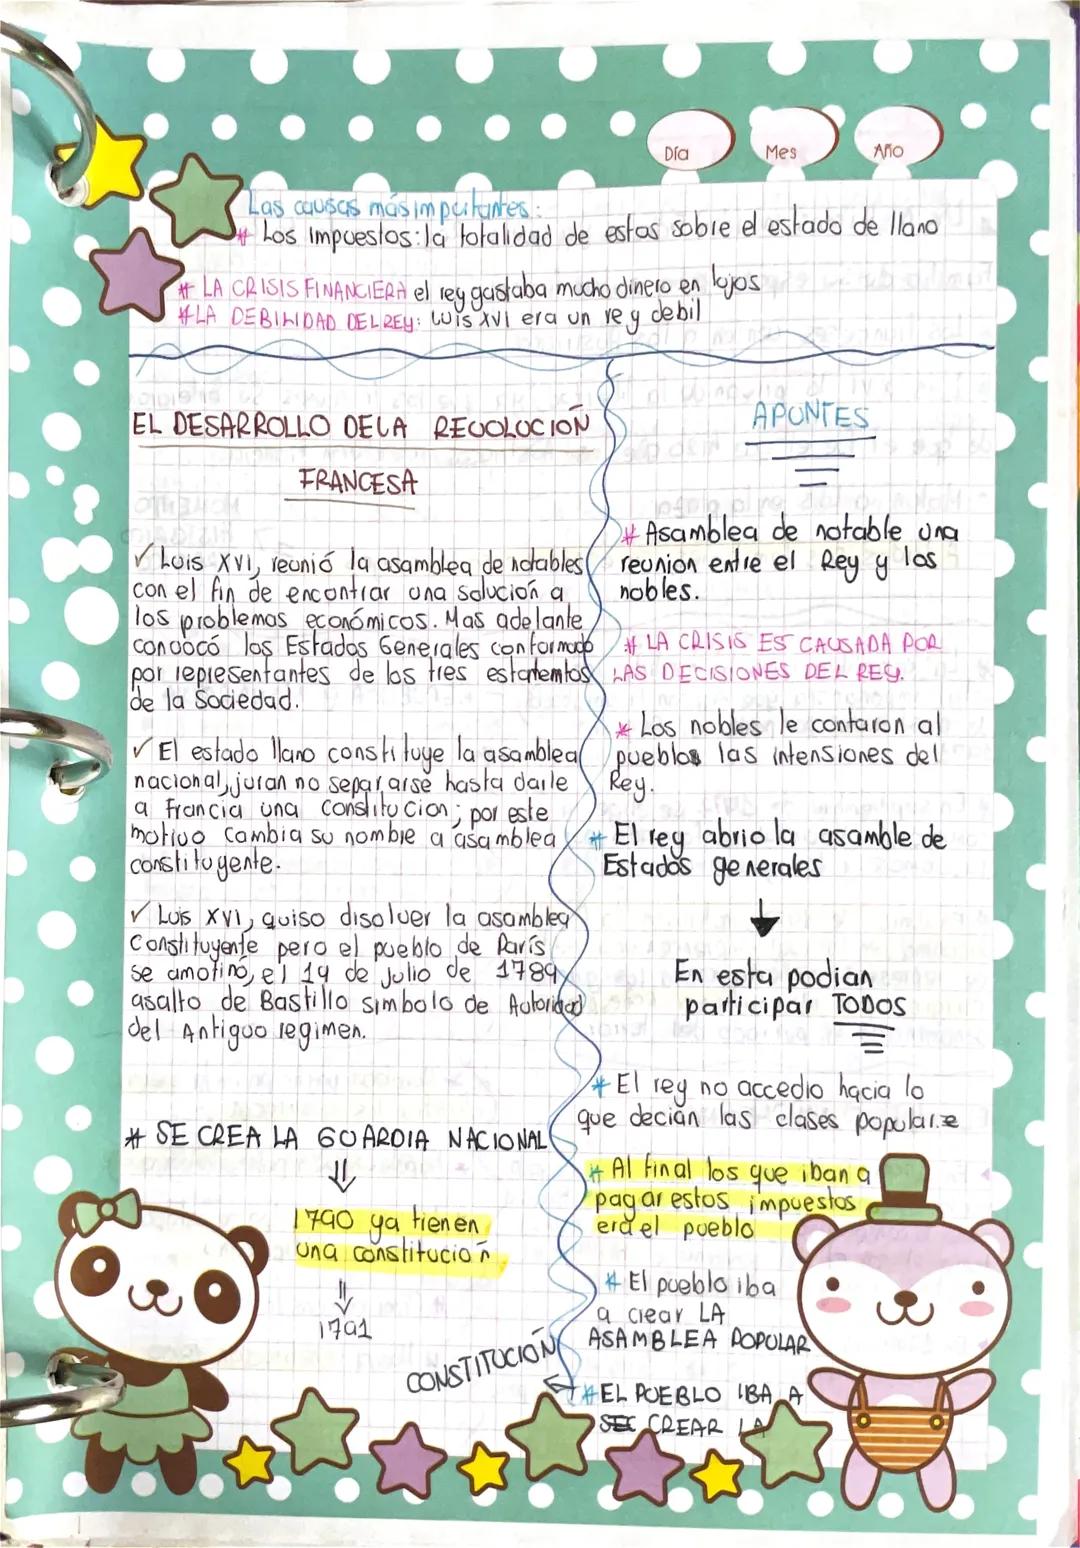 Día Mes Año
Las causas más importantes:
# Los impuestos: la totalidad de estos sobre el estado de llano
# LA CRISIS FINANCIERA el rey gastaba mucho dinero en lojos
# LA DEBILIDAD DEL REY: Luis XVI era un rey debil
EL DESARROLLO DE LA REVOLUCIÓN
FRANCESA
✓ Luis XVI, reunió la asamblea de notables
con el fin de encontrar una solución a
los problemas económicos. Mas adelante
convocó los Estados Generales conformado
por representantes de los tres estatemtos
de la Sociedad.
✓ El estado llano constituye la asamblea
nacional, juran no separarse hasta darle
a Francia una constitucion; por este
motivo cambia su nombre a asamblea
constituyente.
✓ Luis XVI, quiso disolver la asamblea
Constituyente pero el pueblo de París
se amotinó, el 14 de julio de 1789
asalto de Bastillo simbolo de Autoridad
del Antiguo regimen.
# SE CREA LA GUARDIA NACIONAL
1790 ya tienen
una constitución
1791
CONSTITUCIÓN
APUNTES
# Asamblea de notable una
reunion entre el Rey y los
nobles.
# LA CRISIS ES CAUSADA POR
LAS DECISIONES DEL REY.
* Los nobles le contaron al
pueblos las intensiones del
Rey.
# El rey abrio la asamble de
Estados generales
En esta podian
participar TODOS
* El rey no accedio hacia lo
que decian las clases populare
# Al final los que iban a
pagar estos impuestos
era el pueblo
# El pueblo iba
a crear LA
ASAMBLEA POPULAR
# EL PUEBLO IBA A
CREAR LA